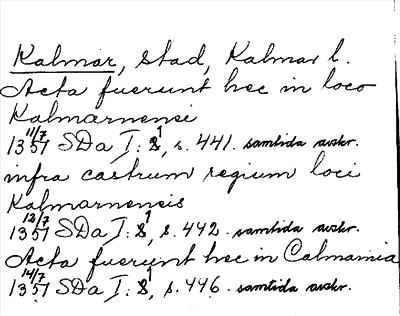 Kalmar, stad, Kalmar l.
Acta fuerunt hec in loco
Kalmarnensi
1357 11/7 SDa I:1, s. 441. samtida avskr.
infra castrum regium loci
Kalmarnensis
1357 12/7 SDa I:1, s. 442. samtida avskr.
Acta fuerunt hec in Calmarnia
1357 14/7 SDa I:1, s. 446. samtida avskr.